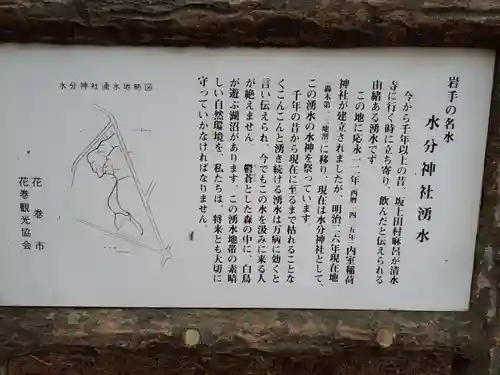 岩手の名水
水分神社湧水
今から千年以上の昔、坂上田村麻呂が清水
寺に行く時に立ち寄り、飲んだと伝えられる
由緒ある湧水です。
この地に応永二二年(西暦一四一五年)内室稲荷
神社が建立されましたが、明治二六年現在地
に移り、現在は水分神社として、
この湧水の水神を祭っています。
千年の昔から現在に至るまで枯れることな
くこんこんと湧き続ける湧水は万病に効くと
言い伝えられ、今でもこの水を汲みに来る人
が絶えません。鬱蒼とした森の中に、白鳥
が遊ぶ湖沼があります。この湧水地帯の素晴
しい自然環境を、私たちは、将来とも大切に
守っていかなければなりません。
花巻市
花巻観光協会
水分神社湧水地略図